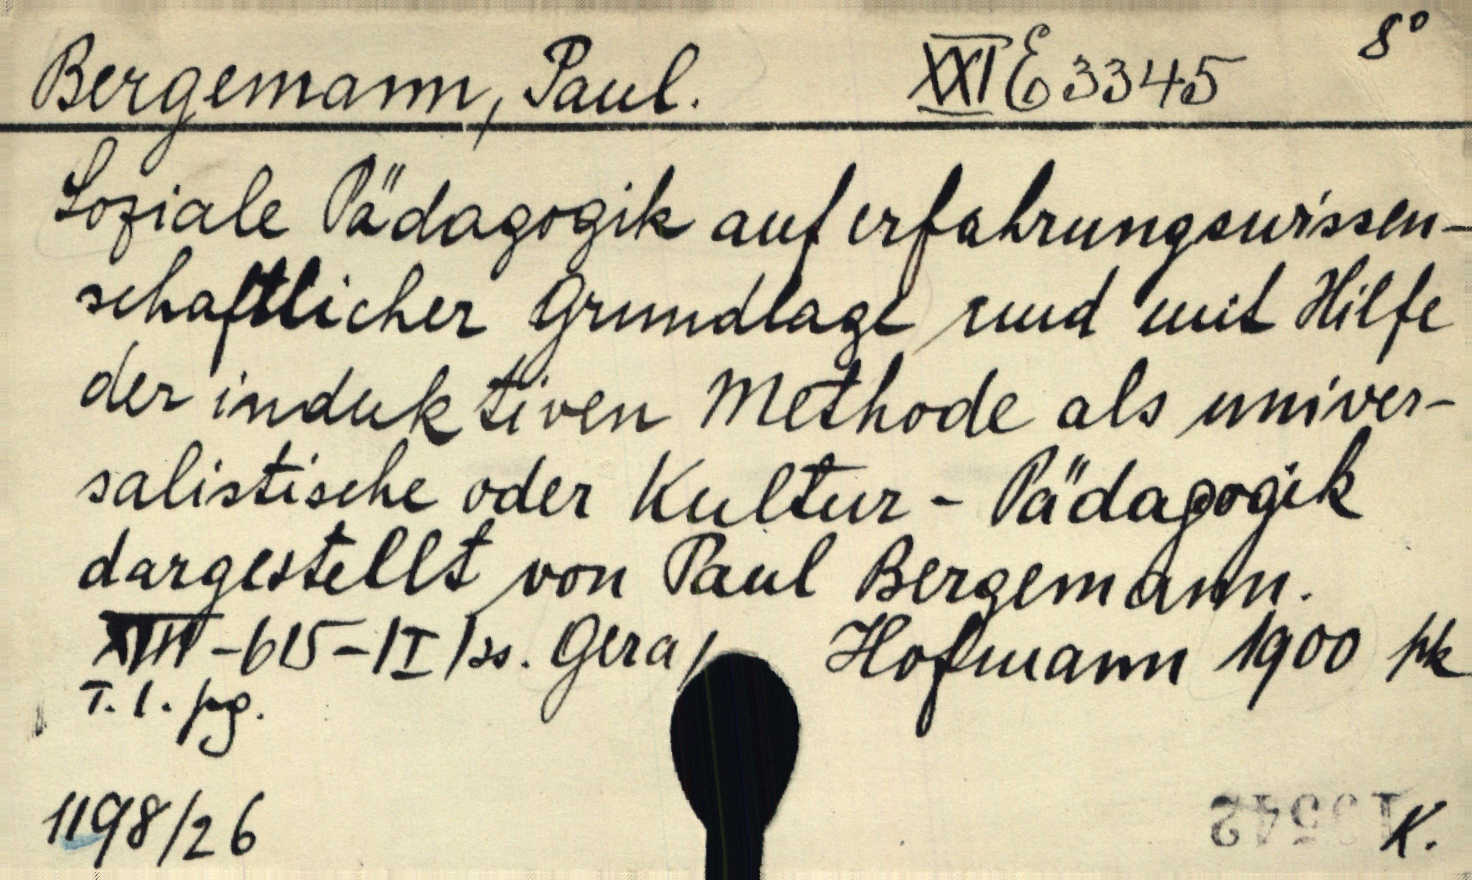 Bergemann, Paul. XXI E 3345 8°
Soziale Pädagogik auf erfahrungswissen-
schaftlicher Grundlage und mit Hilfe
der induktiven Methode als univer-
salistische oder Kultur-Pädagogik
dargestellt von Paul Bergemann.
XVIII-615-1 I lss. Gera, Hofmann 1900 pk
T. l. pg.
1198/26 K.